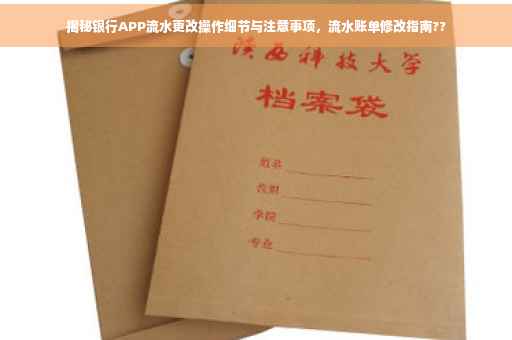 揭秘银行APP流水更改操作细节与注意事项，流水账单修改指南??
陕西科技大学
档案袋
姓名
学院
专业